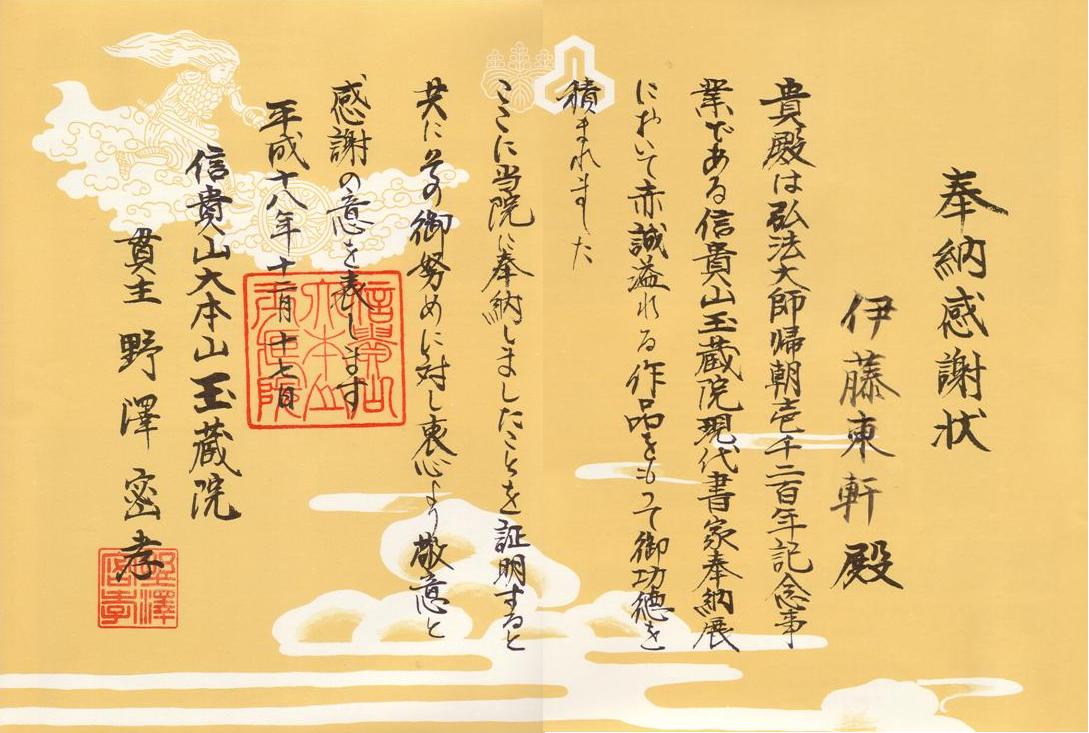 奉納感謝状
伊藤東軒殿
貴殿は弘法大師帰朝壱千二百年記念事
業である信貴山玉蔵院現代書家奉納展
において赤誠溢れる作品をもって御功徳を
積まれました
ここに当院に奉納しましたことを証明すると
共にその御努めに対し衷心より敬意と
感謝の意を表します
平成十八年十二月十七日
信貴山大本山玉蔵院
貫主 野澤密孝